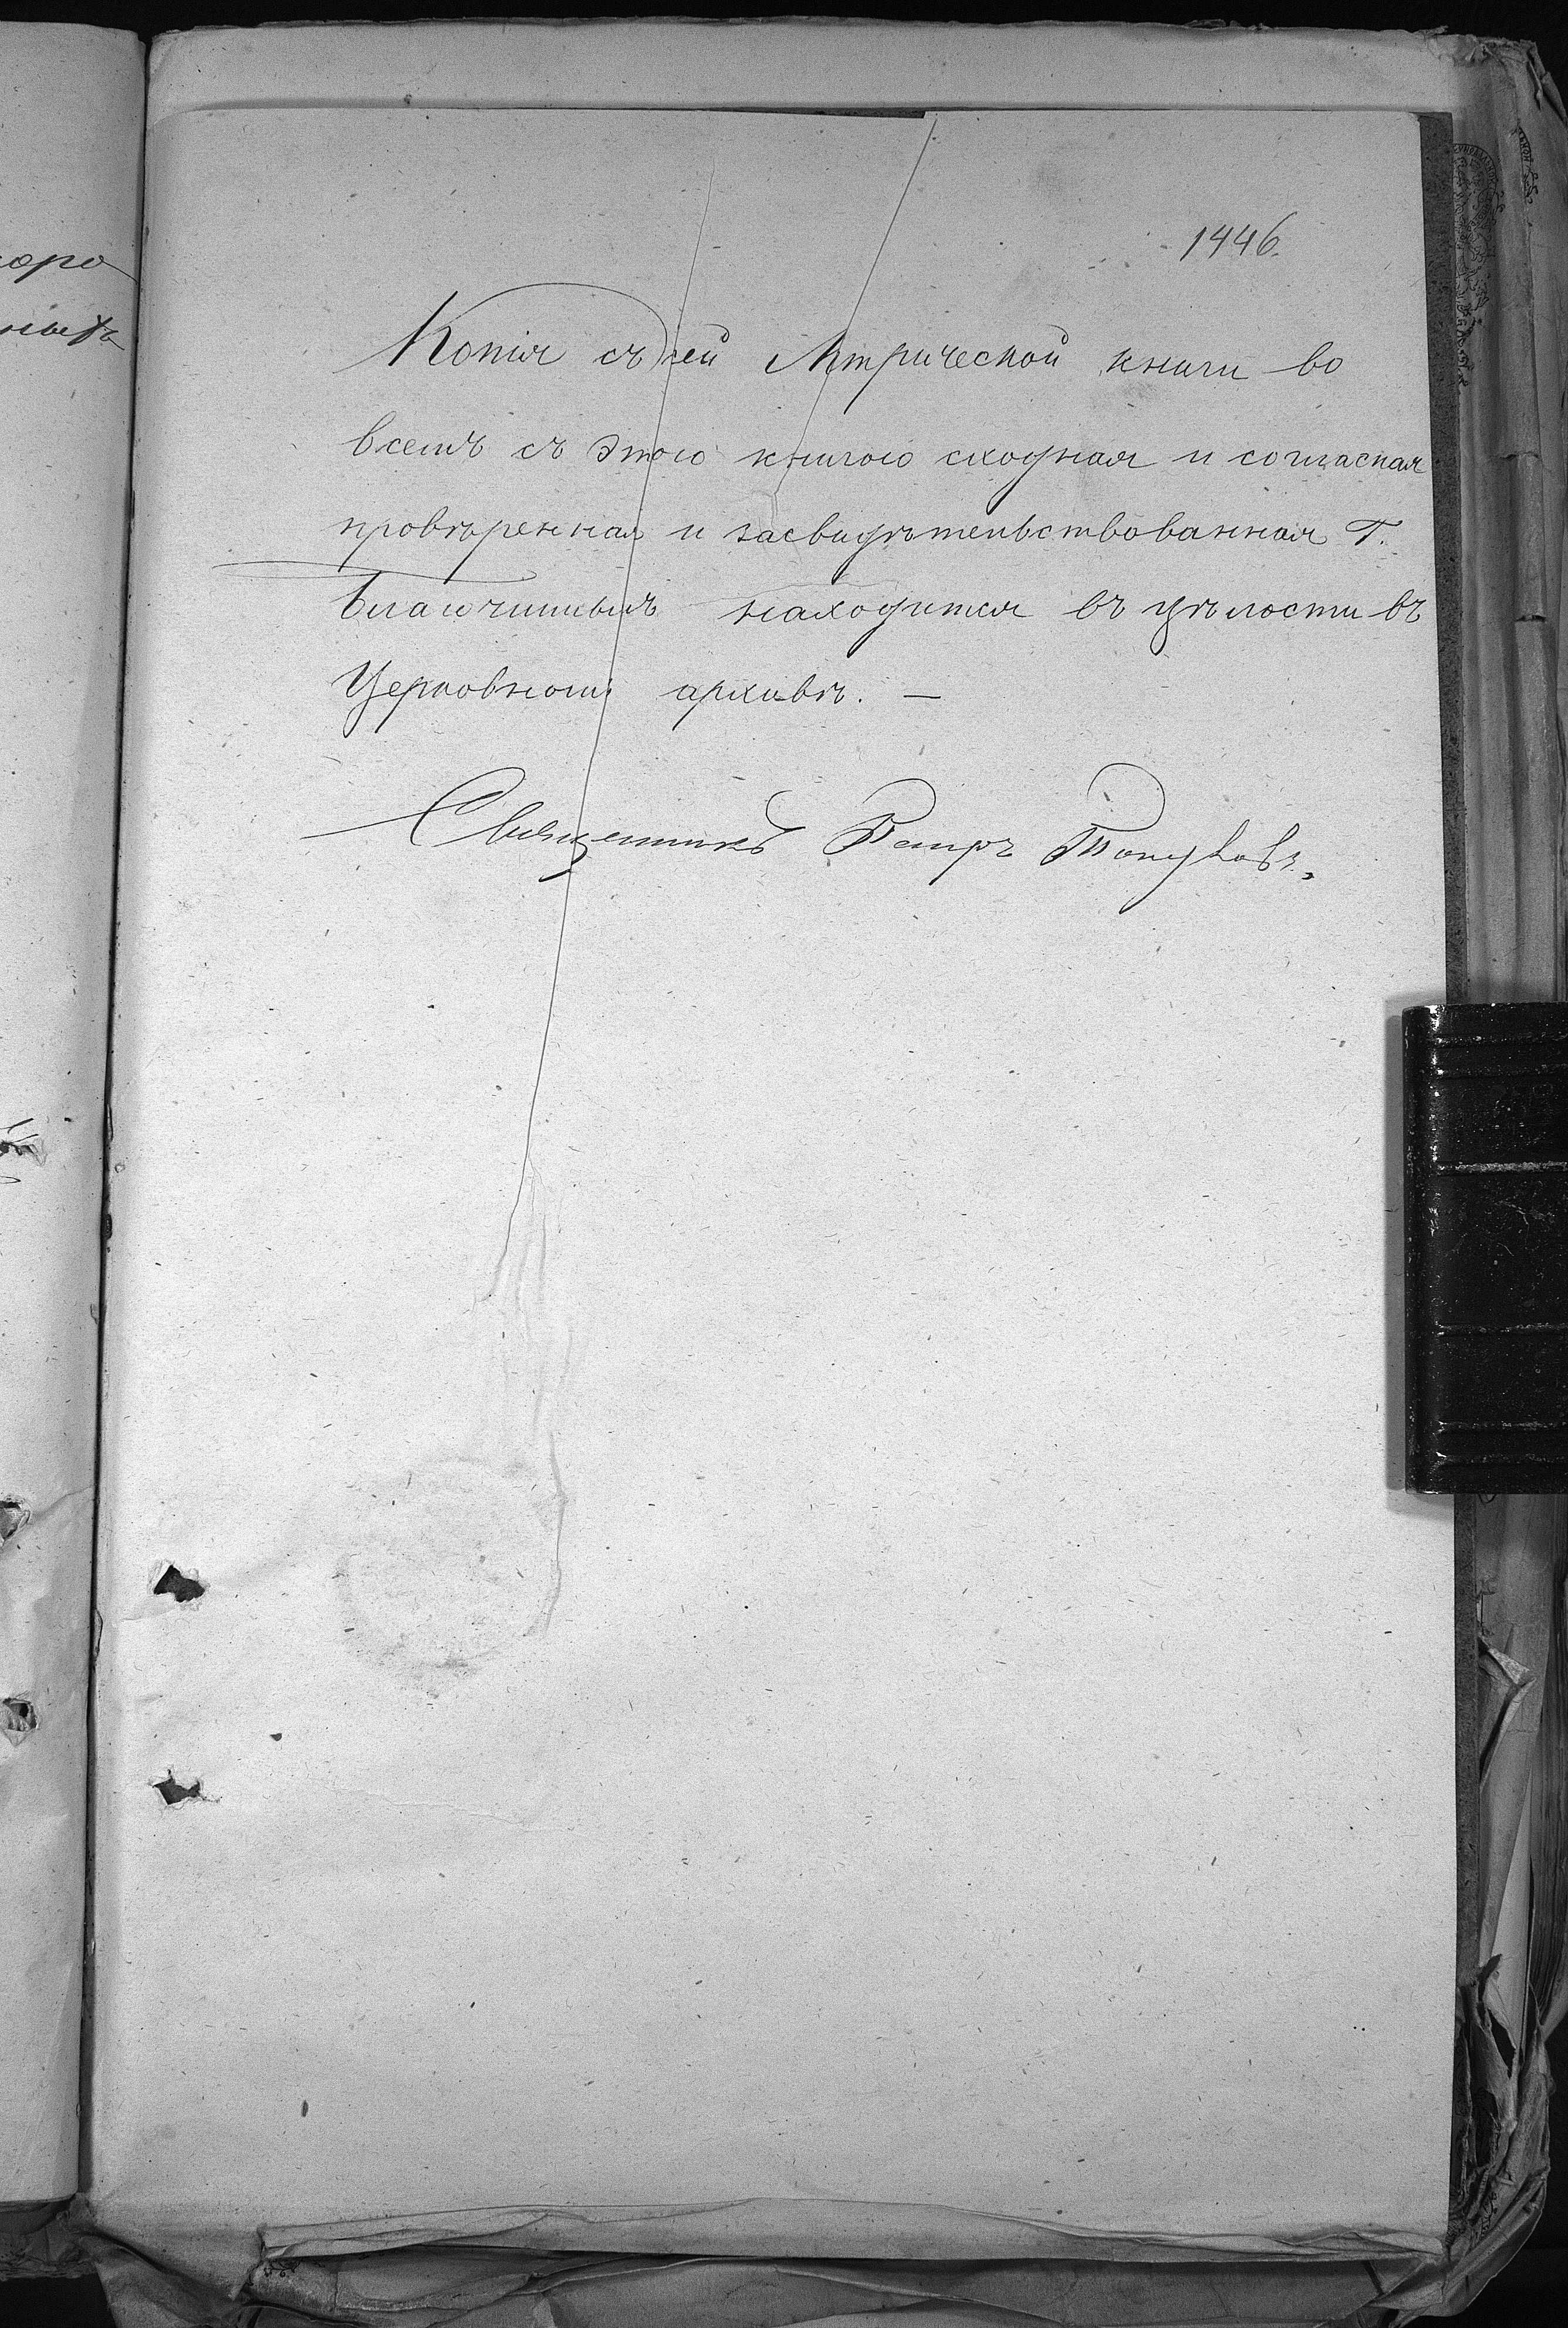 1446.
Копія съ сей Мтрической книги во
всемъ съ этою книгою сходная и согласная
провѣренная и засвидѣтельствованная Г.
Благочиннымъ находится въ цѣлости въ
Церковномъ архивѣ. —
Священникъ Петръ